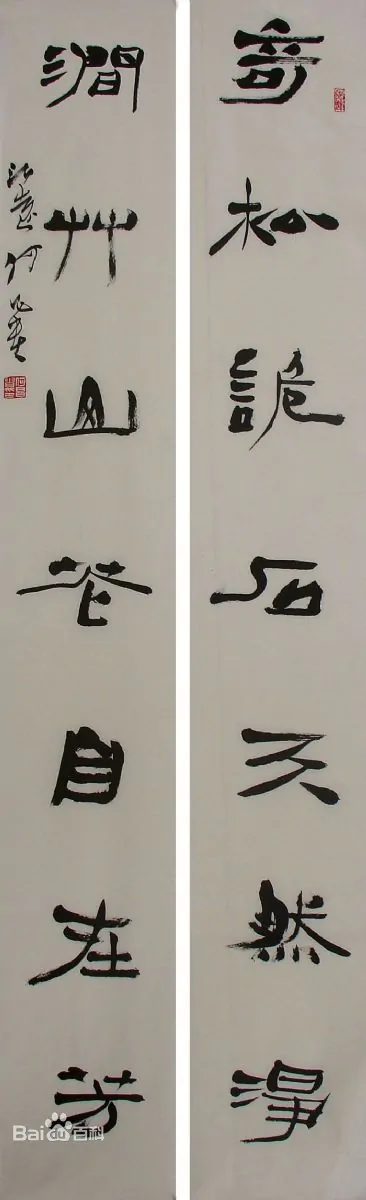 奇松詭石天然淨
澗艸山花自在芳
Baidu百科